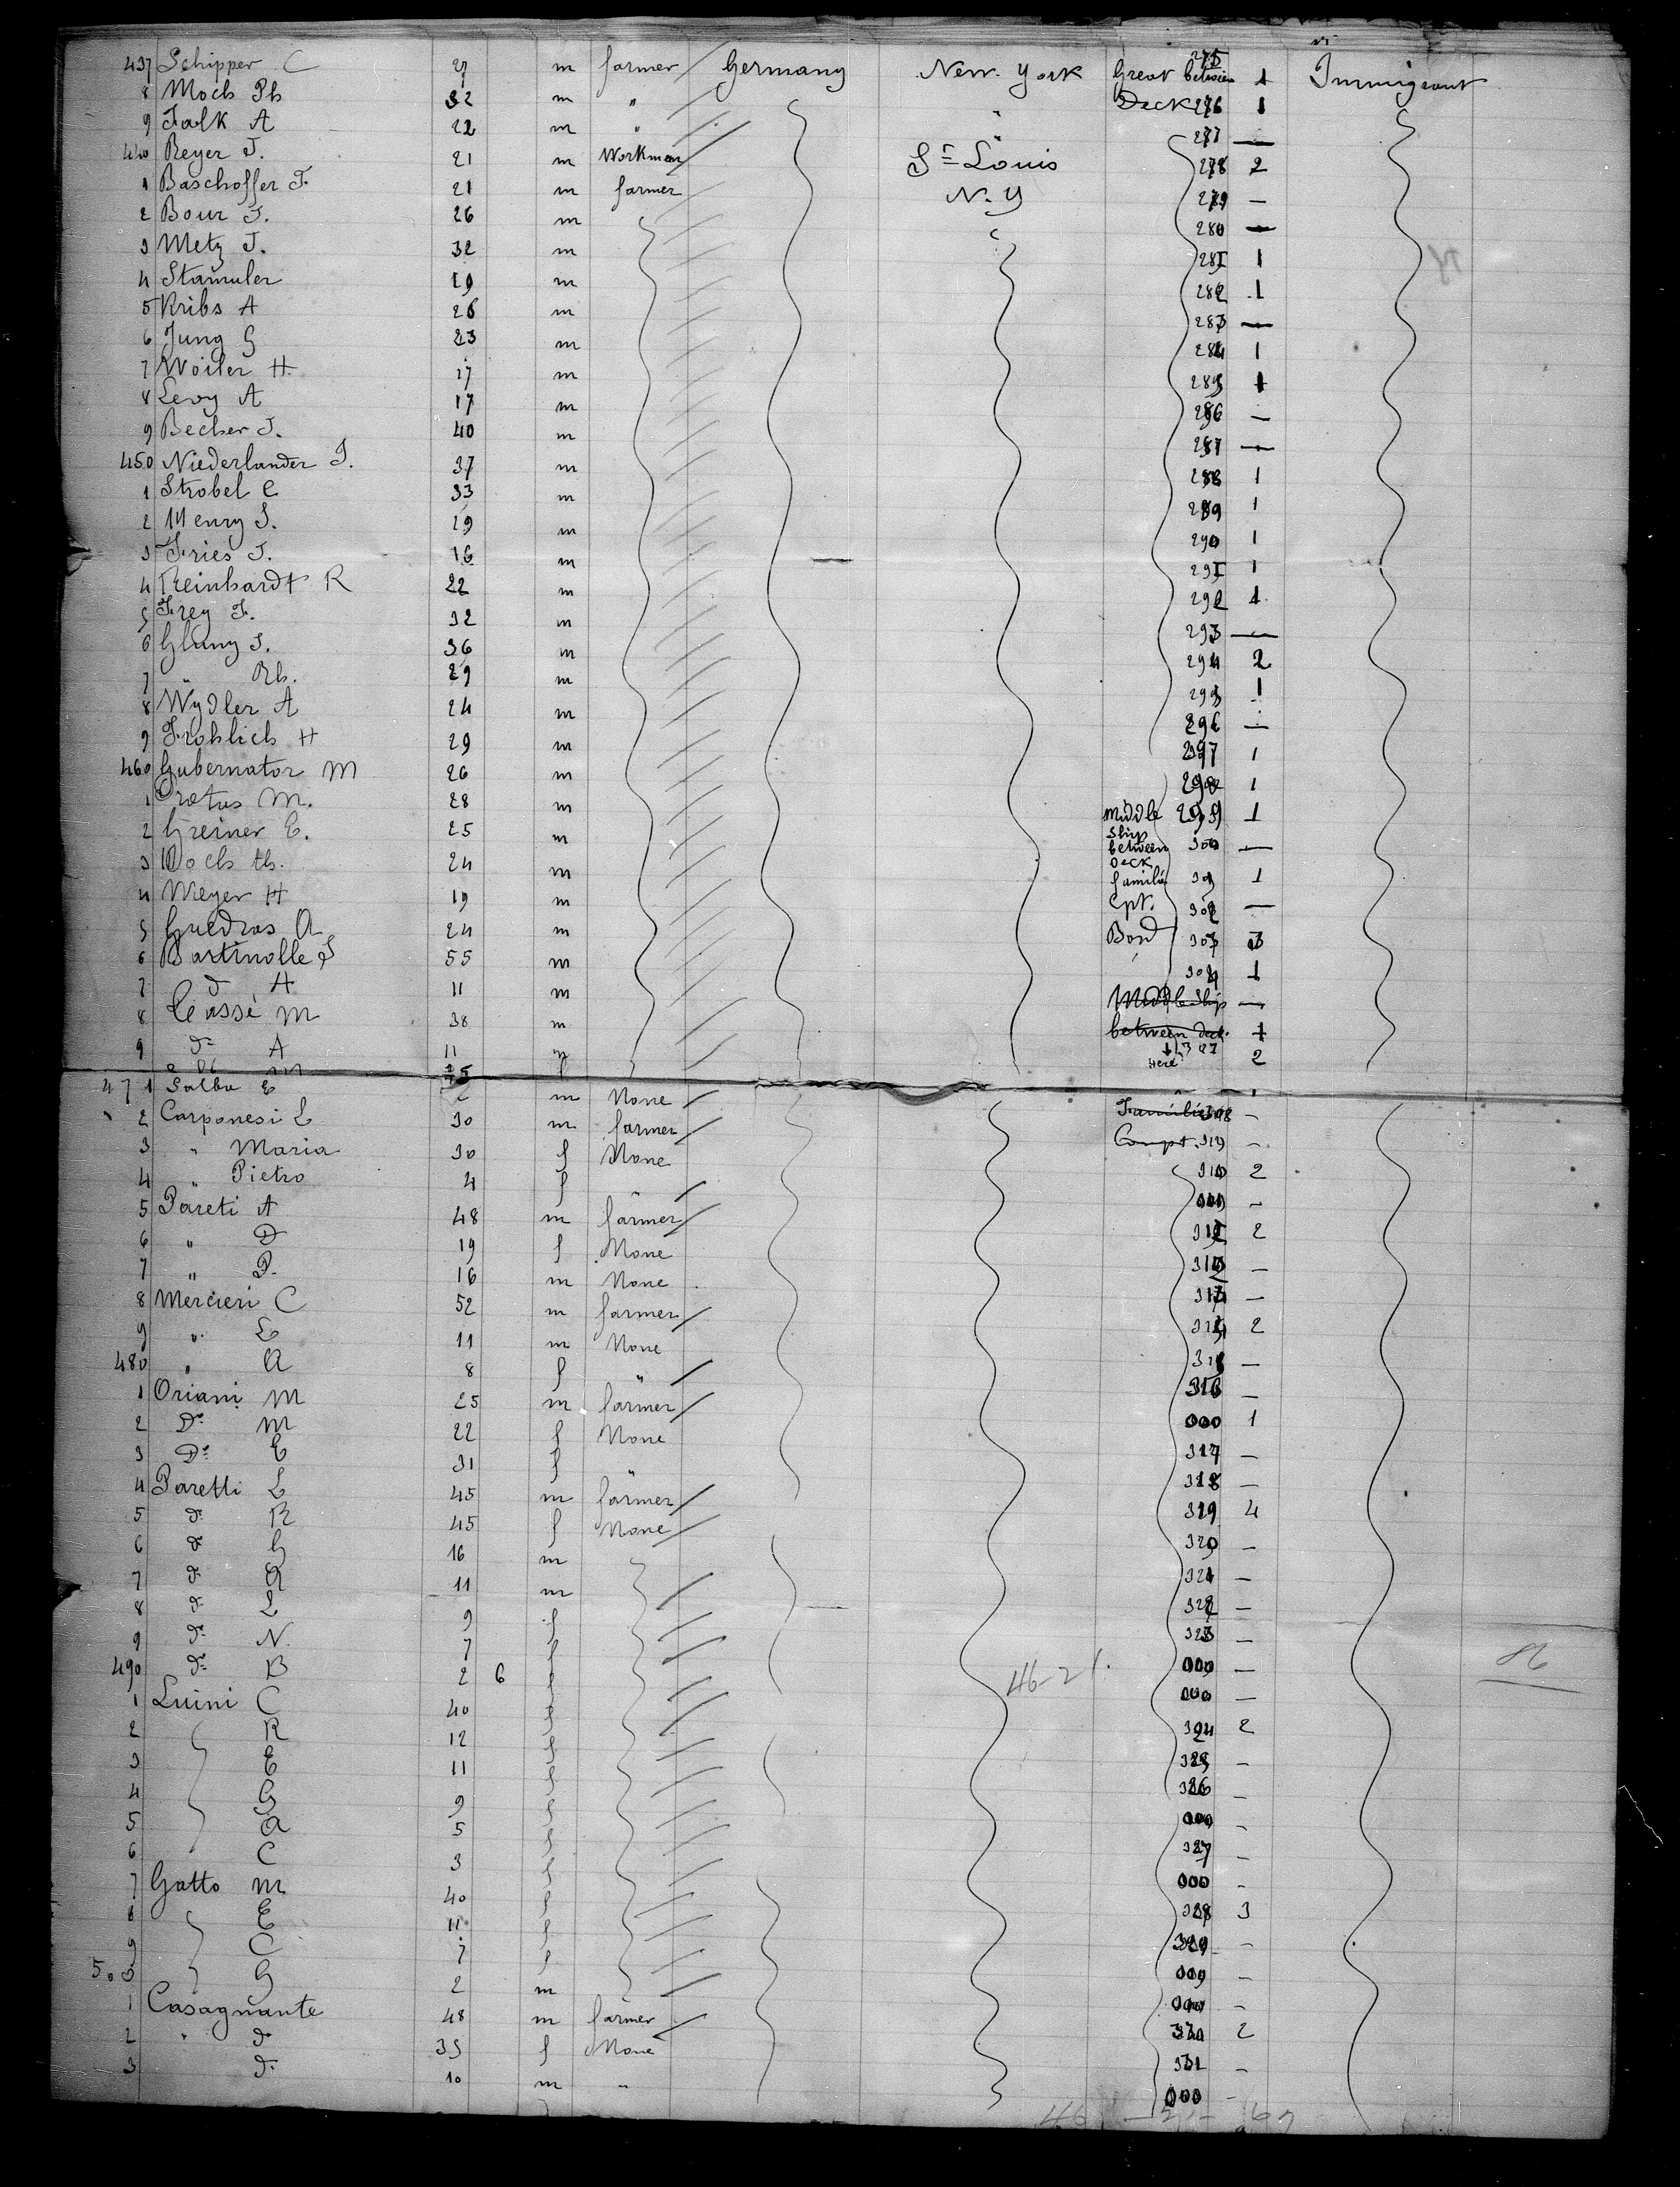 437 Schipper C 27 m farmer Germany New-York Great between 275 1 Immigrant
8 Moch Ph 32 m " Deck 276 1
9 Falk A 22 m " " 277 —
440 Beyer J. 21 m Workman St Louis 278 2
1 Baschoffer J. 21 m farmer N.Y 279 —
2 Bour J. 26 m 280 —
3 Metz J. 32 m 281 1
4 Stamuler 29 m 282 1
5 Kribs A 26 m 283 —
6 Jung G 23 m 284 1
7 Woiler H. 17 m 285 1
8 Levy A 17 m 286 —
9 Becher J. 40 m 287 —
450 Niederlander J. 37 m 288 1
1 Strobel C 33 m 289 1
2 Henry J. 29 m 290 1
3 Fries J. 16 m 291 1
4 Reinhardt R 22 m 292 1
5 Frey F. 32 m 293 —
6 Glany J. 36 m 294 2
7 " Rh. 29 m 295 1
8 Wydler A 24 m 296 —
9 Frohlich H 29 m 297 1
460 Gubernator M 26 m 298 1
1 Protus M. 28 m Middle 299 1
2 Greiner E. 25 m Ship between 300 —
3 Boch th. 24 m Deck familie 301 1
4 Meyer H 19 m Cpt. 302 —
5 Guedras A 24 m Bord 303 3
6 Bartinolle J 55 m 304 1
7 d A 11 m Middle Ship —
8 Cussé M 38 m between deck 1
9 d° A 11 m Here 2
m f
471 Salbu E m None
2 Carponesi L 30 m farmer Familie 308 —
3 " Maria 30 f None Compt. 319 —
4 " Pietro 4 f " 310 2
5 Pareti A 48 m farmer —
6 " D 19 f None 312 2
7 " P. 16 m None —
8 Mercieri C 52 m farmer —
9 " L 11 m None 314 2
480 " A 8 f " 315 —
1 Oriani M 25 m farmer 316 —
2 D° M 22 f None 000 1
3 D° E 31 f " 317 —
4 Paretti L 45 m farmer 318 —
5 d° R 45 f None 319 4
6 d° G 16 m 320 —
7 d° R 11 m 321 —
8 d° L 9 f 322 —
9 d° N. 7 f 323 —
490 d° B 2 6 f 46-21. 000 — 86
1 Luini C 40 f 000 —
2 R 12 f 324 2
3 E 11 f 325 —
4 G 9 f 326 —
5 A 5 f 000 —
6 C 3 f 327 —
7 Gatto M 40 f 000 —
8 E 11 f 328 3
9 C 7 f 329 —
500 G 2 m 000 —
1 Casagnante 48 m farmer 000 —
2 " d° 35 f None 330 2
3 d° 10 m " 331 —
000 —